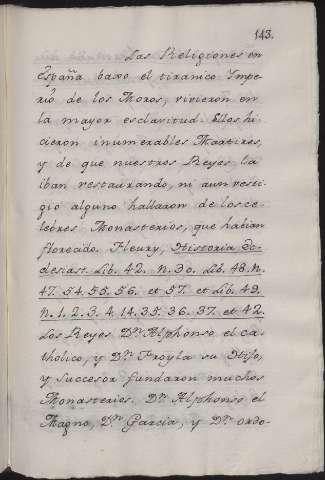 143.
Las Religiones en
España baxo el tiranico Impe-
rio de los Moros, vivieron en
la mayor esclavitud. Ellos hi-
cieron inumerables Martires,
y de que nuestros Reyes la
iban restaurando, ni aun vesti-
gio alguno hallaron de los ce-
lebres Monasterios, que habian
florecido. Fleury, Historia Ec-
clesiast. Lib. 42. n. 30. Lib. 48. n.
47. 54. 55. 56. et 57. et Lib. 49.
n. 1. 2. 3. 4. 14. 35. 36. 37. et 42.
Los Reyes Dn. Alphonso el Ca-
tholico, y Dn. Froyla su Hijo,
y successor fundaron muchos
Monasterios. Dn. Alphonso el
Magno, Dn. Garcia, y Dn. Ordo-